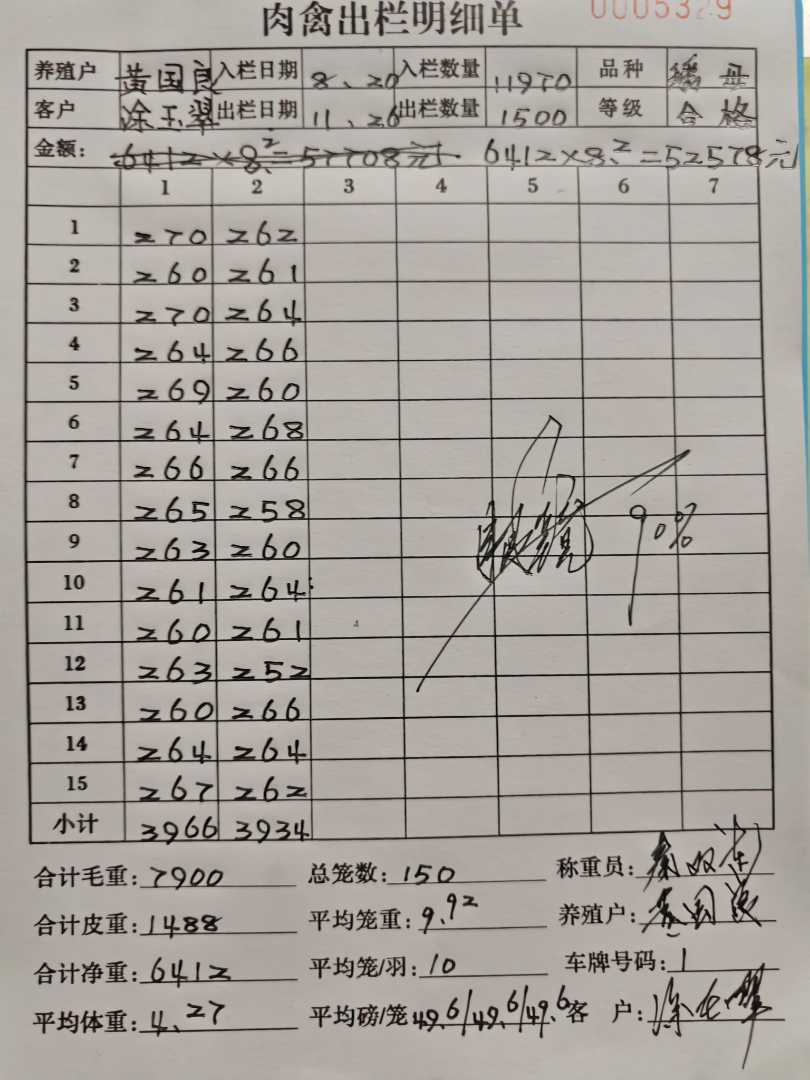 肉禽出栏明细单 0005329
养殖户 黄国良 入栏日期 8、20 入栏数量 11970 品种
客户 涂玉翠 出栏日期 11、26 出栏数量 1500 等级 合格
金额: 6412×8.2=52578元
1 2 3 4 5 6 7
1 270 262
2 260 261
3 270 264
4 264 266
5 269 260
6 264 268
7 266 266
8 265 258
9 263 260 90%
10 261 264
11 260 261
12 263 252
13 260 266
14 264 264
15 267 262
小计 3966 3934
合计毛重: 7900 总笼数: 150 称重员:
合计皮重: 1488 平均笼重: 9.92 养殖户: 黄国良
合计净重: 6412 平均笼/羽: 10 车牌号码: 1
平均体重: 4.27 平均磅/笼 49.6/49.6/49.6 客 户: 涂玉翠